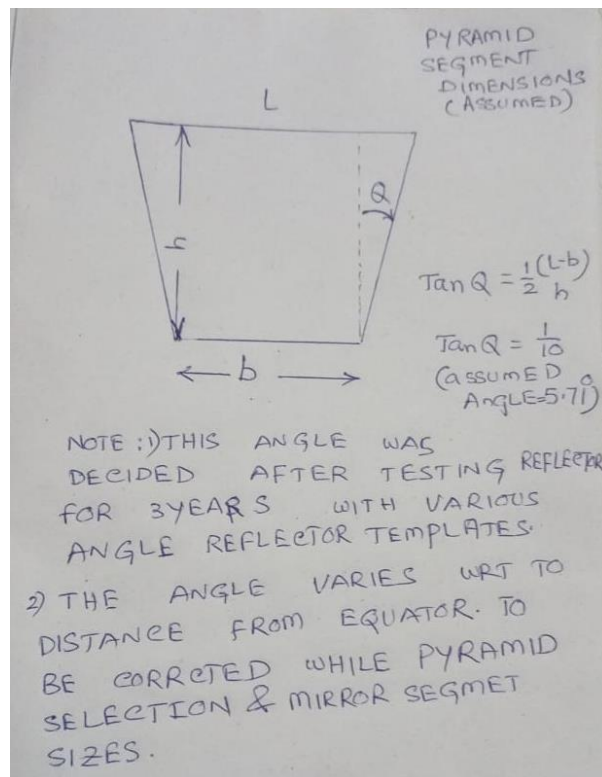 PYRAMID
SEGMENT
DIMENSIONS
(ASSUMED)
L
Q
h
Tan Q = 1/2 (L-b)/h
Tan Q = 1/10
(ASSUMED
ANGLE=5.71°)
b
NOTE:1)THIS ANGLE WAS
DECIDED AFTER TESTING REFLECTOR
FOR 3YEARS WITH VARIOUS
ANGLE REFLECTOR TEMPLATES.
2) THE ANGLE VARIES WRT TO
DISTANCE FROM EQUATOR. TO
BE CORRCTED WHILE PYRAMID
SELECTION & MIRROR SEGMET
SIZES.